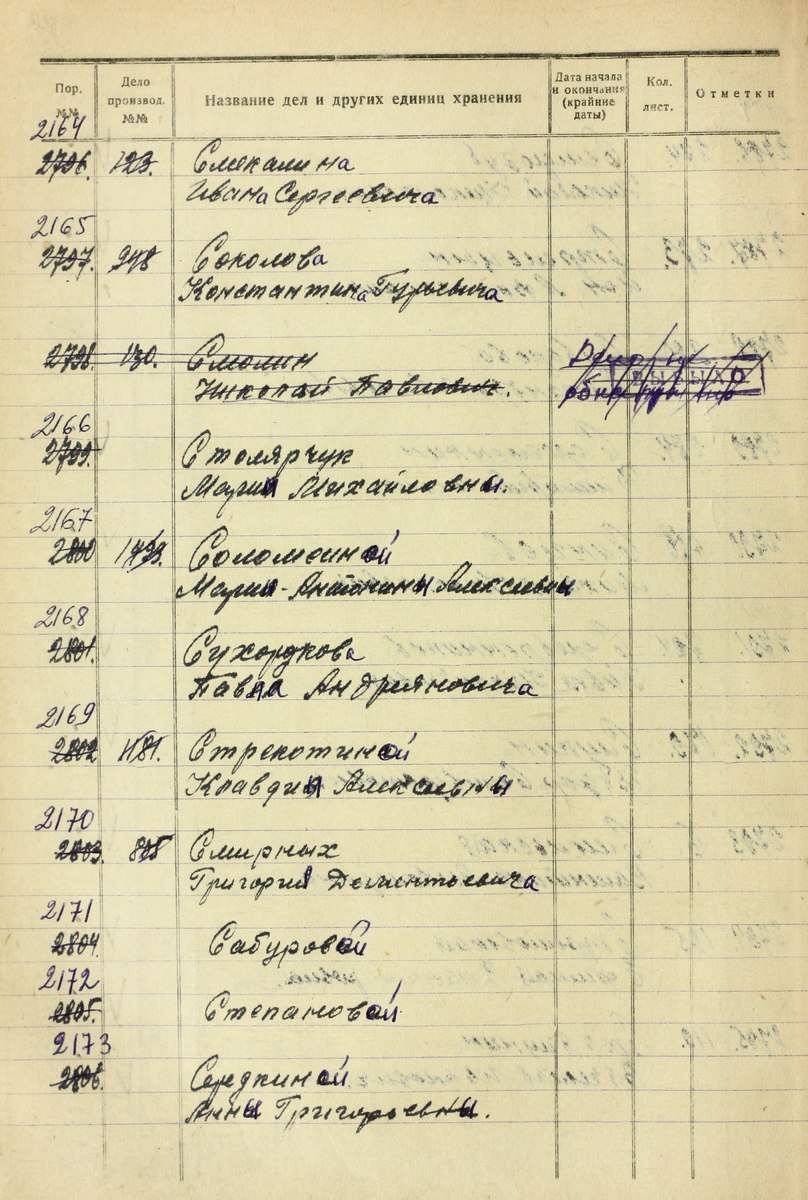 Пор. №№
Дело производ. №№
Название дел и других единиц хранения
Дата начала и окончания (крайние даты)
Кол. лист.
Отметки
2164
2796. 123. Смекалина
Ивана Сергеевича
2165
2797. 948 Соколова
Константина Гурьевича
2798. 130. Смолин
Николай Павлович.
2166
2799. Столярчук
Марии Михайловны.
2167
2800 1493. Соломеиной
Марии-Антонины Алексеевны
2168
2801. Сухордкова
Павла Андрияновича
2169
2802 1181. Стрекотиной
Клавдии Алексеевны
2170
2803. 805 Смирных
Григория Дементьевича
2171
2804. Сабуровой
2172
2805. Степановой
2173
2806. Середкиной
Анны Григорьевны.